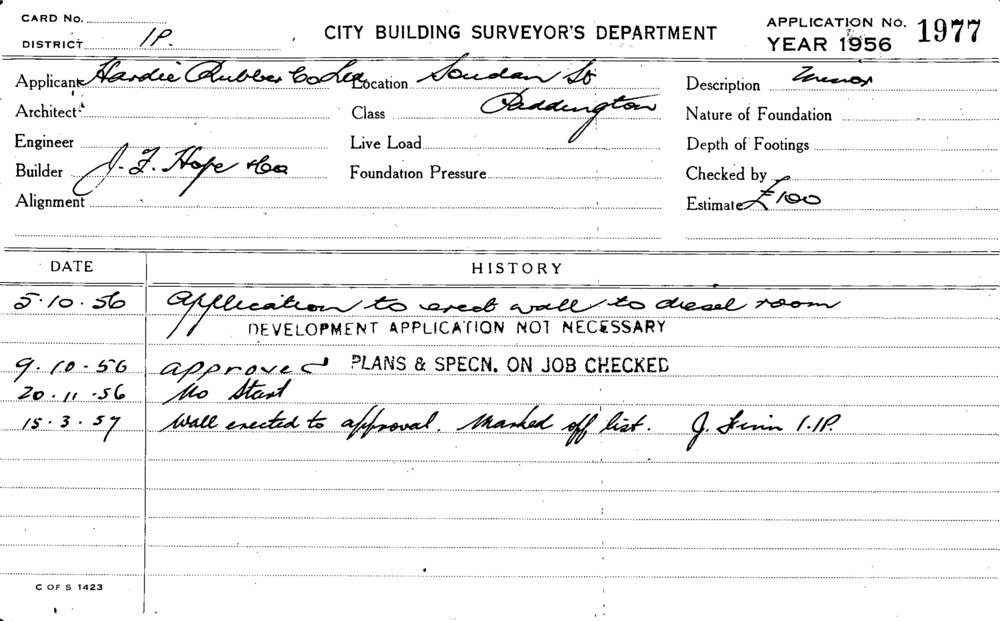 CARD No. CITY BUILDING SURVEYOR'S DEPARTMENT APPLICATION No. 1977
DISTRICT 1P. YEAR 1956
Applicant Hardie Rubber Co Ltd Location Soudan St Description Minor
Architect Class Paddington Nature of Foundation
Engineer Live Load Depth of Footings
Builder J. F. Hope & Co Foundation Pressure Checked by
Alignment Estimate £100
DATE HISTORY
5.10.56 Application to erect wall to diesel room
DEVELOPMENT APPLICATION NOT NECESSARY
9.10.56 approved PLANS & SPECN. ON JOB CHECKED
20.11.56 No Start
15.3.57 Wall erected to approval. Marked off list. J. Finn 1.1P.
C OF S 1423